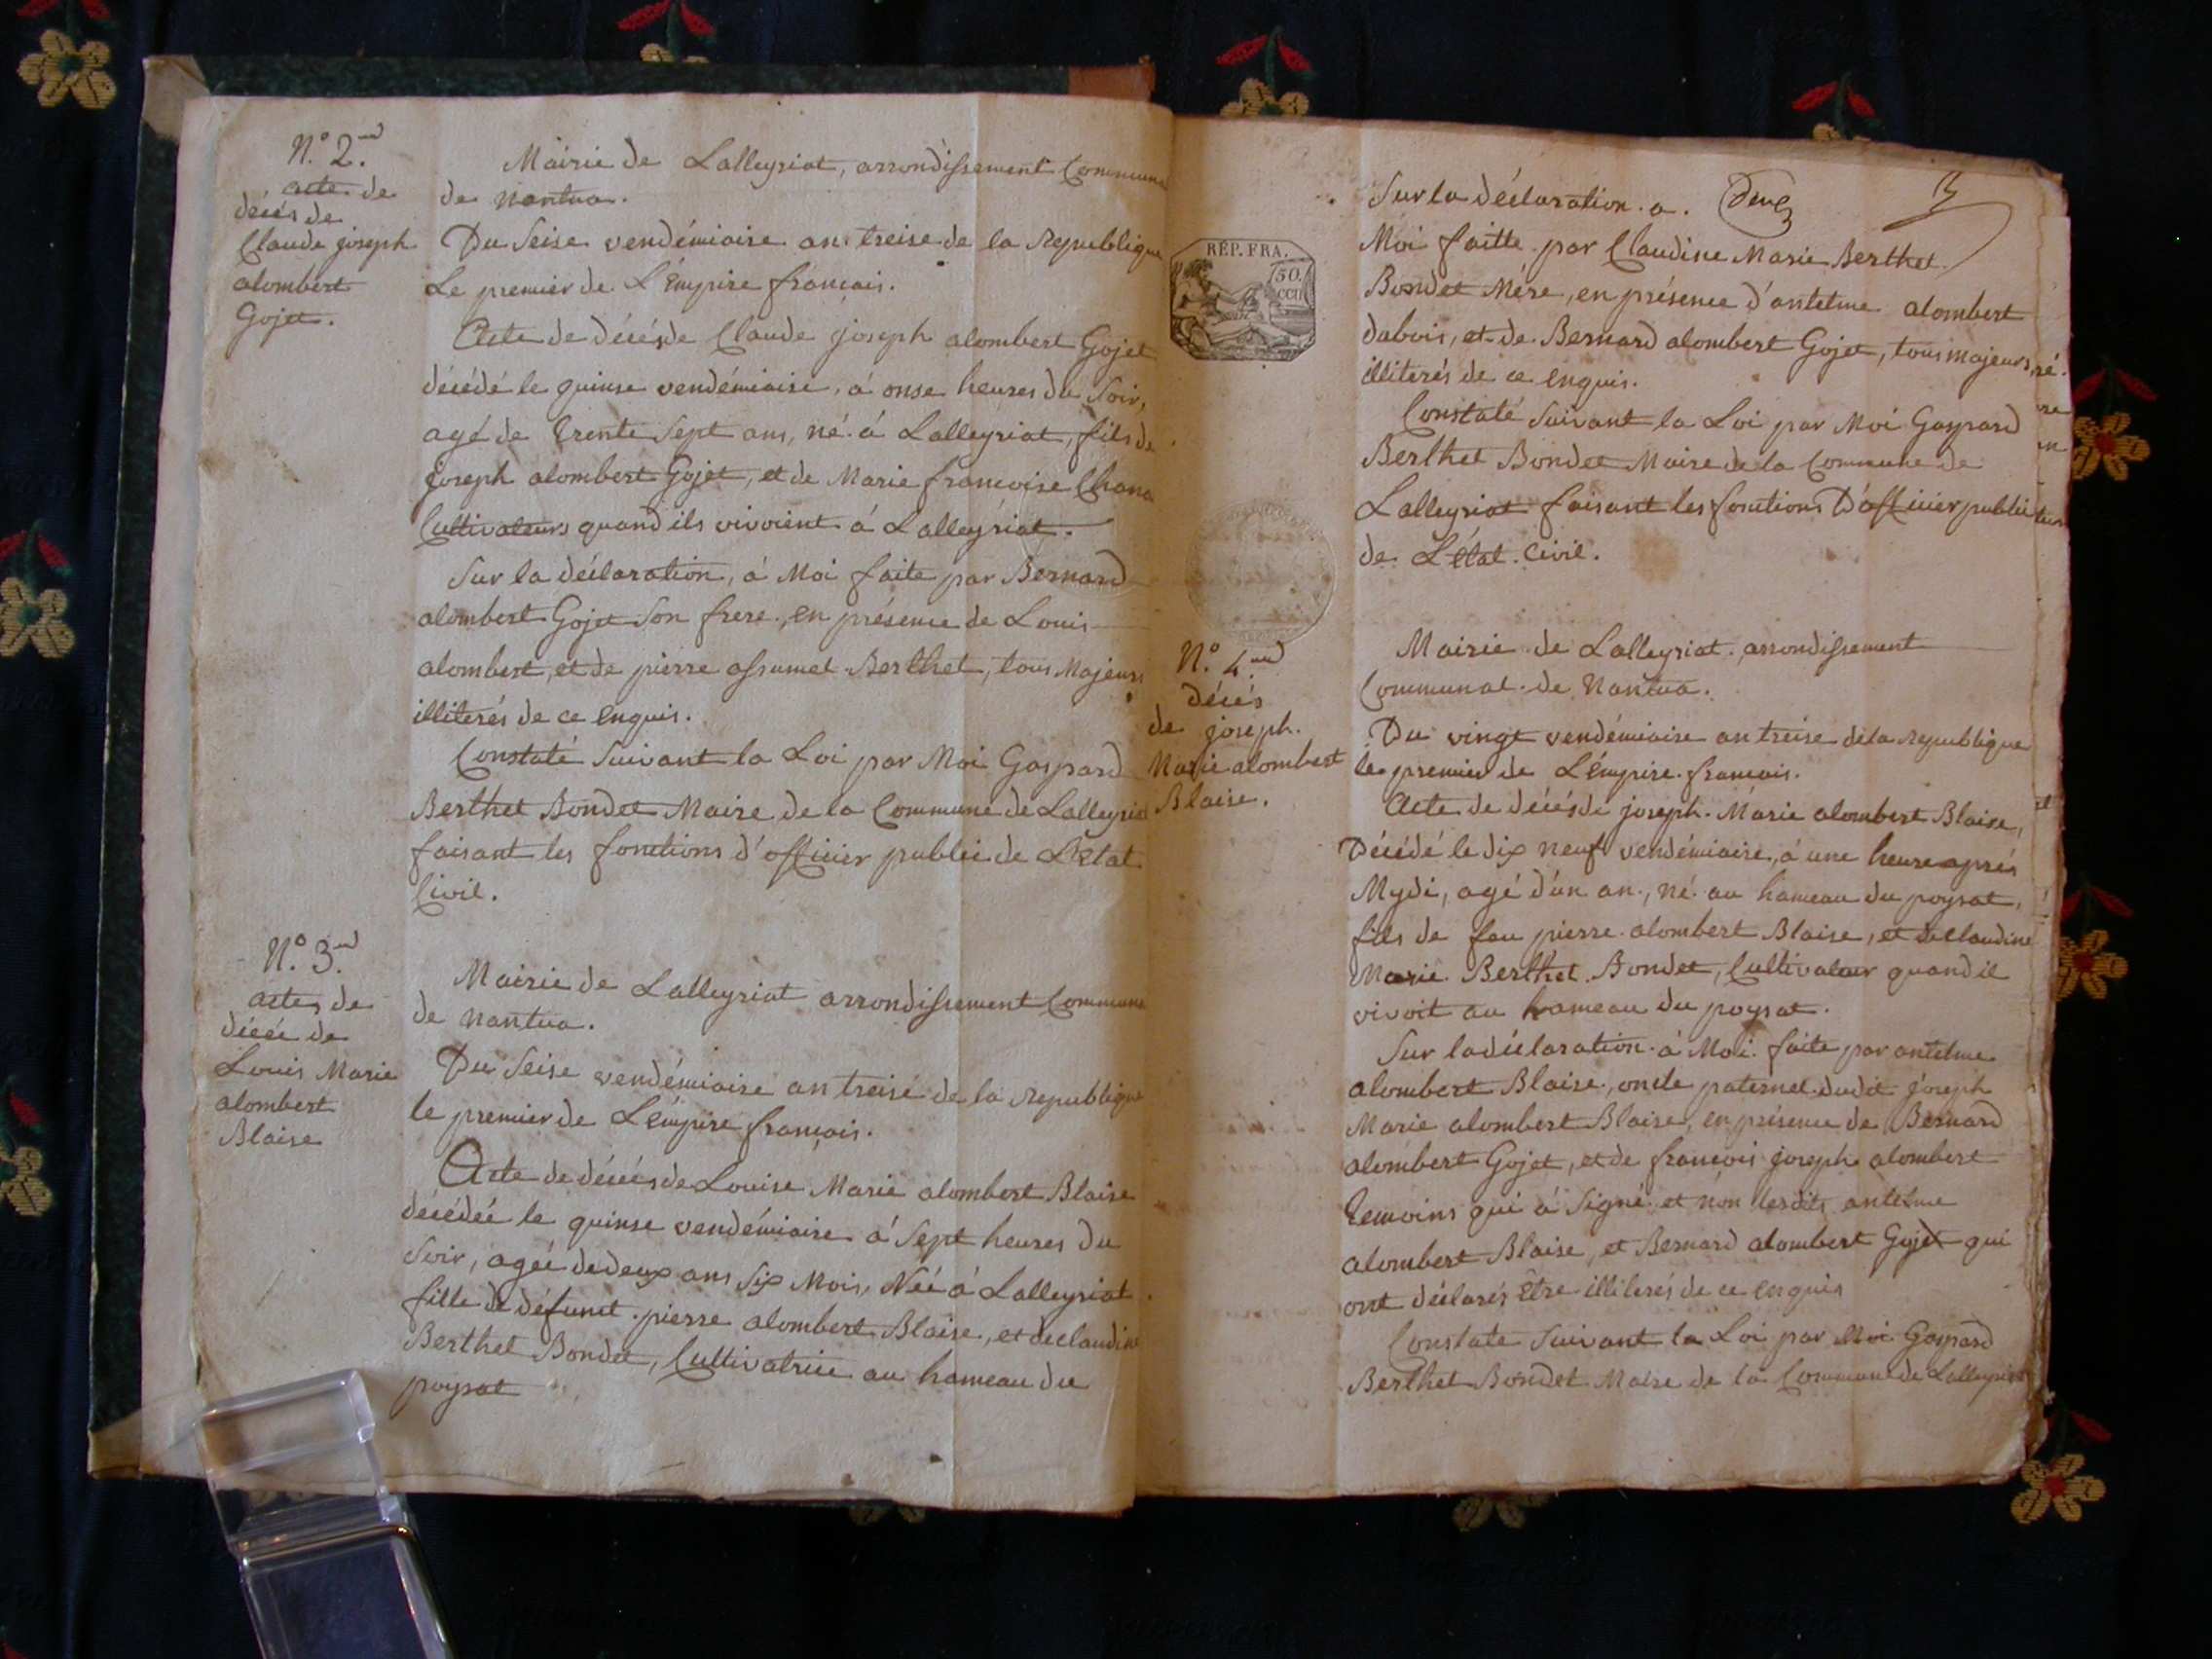 N.° 2.nd
acte de
décés de
Claude joseph
alombert
Gojet.
Mairie de Lalleyriat, arrondissement Commune
de Nantua.
Du Seise vendémiaire an treise de la Republique
Le premier de L'Empire francais.
Acte de décés de Claude joseph alombert Gojet
décédé le quinse vendémiaire, á onse heures du Soir,
agé de trente Sept ans, né á Lalleyriat, fils de
joseph alombert Gojet, et de Marie francoise Chana
Cultivateurs quand ils vivoient á Lalleyriat.
Sur la déclaration, á Moi faite par Bernard
alombert Gojet Son frere, en présence de Louis
alombert, et de pierre assumel Berthet, tous Majeurs
illiterés de ce enquis.
Constaté Suivant la Loi par Moi Gaspard
Berthet Bondet Maire de la Commune de Lalleyriat
faisant les fonctions d'officier public de L'Etat
Civil.
N.° 3.nd
actes de
décée de
Louis Marie
alombert
Blaise
Mairie de Lalleyriat arrondissement Commune
de Nantua.
Du Seise vendémiaire an treise de la Republique
le premier de L'émpire français.
Acte de décés de Louise Marie alombert Blaise
décédée le quinse vendémiaire á Sept heures du
Soir, agée de deux ans Six Mois, Née á Lalleyriat
fille de défunct pierre alombert Blaise, et de claudine
Berthet Bondet, Cultivatrice au hameau du
poysat
Sur la déclaration a.
REP. FRA.
Moi faitte par Claudine Marie Berthet
Bondet Mére, en présence d'antelme alombert
dabois, et de Bernard alombert Gojet, tous majeurs,
illiterés de ce enquis.
Constaté Suivant la Loi par Moi Gaspard
Berthet Bondet Maire de la Commune de
Lalleyriat faisant les fonctions D'officier public
de L'état Civil.
N.° 4.nd
décés
de joseph
Marie alombert
Blaise.
Mairie de Lalleyriat arrondissement
Communal de Nantua.
Du vingt vendémiaire an treise de la Republique
le premier de L'émpire francais.
Acte de décés de joseph Marie alombert Blaise,
Décédé le dix neuf vendémiaire, á une heure aprés
Mydi, agé d'un an, né au hameau du poysat,
fils de feu pierre alombert Blaise, et de claudine
Marie Berthet Bondet, Cultivateur quand il
vivoit au hameau du poysat.
Sur la déclaration á Moi faite par antelme
alombert Blaise, oncle paternel dudit joseph
Marie alombert Blaise, en présence de Bernard
alombert Gojet, et de francois joseph alombert
temoins qui á Signé et non lesdits antelme
alombert Blaise, et Bernard alombert Gojet qui
ont déclarés être illiterés de ce enquis
Constaté Suivant la Loi par Moi Gaspard
Berthet Bondet Maire de la Commune de Lalleyriat